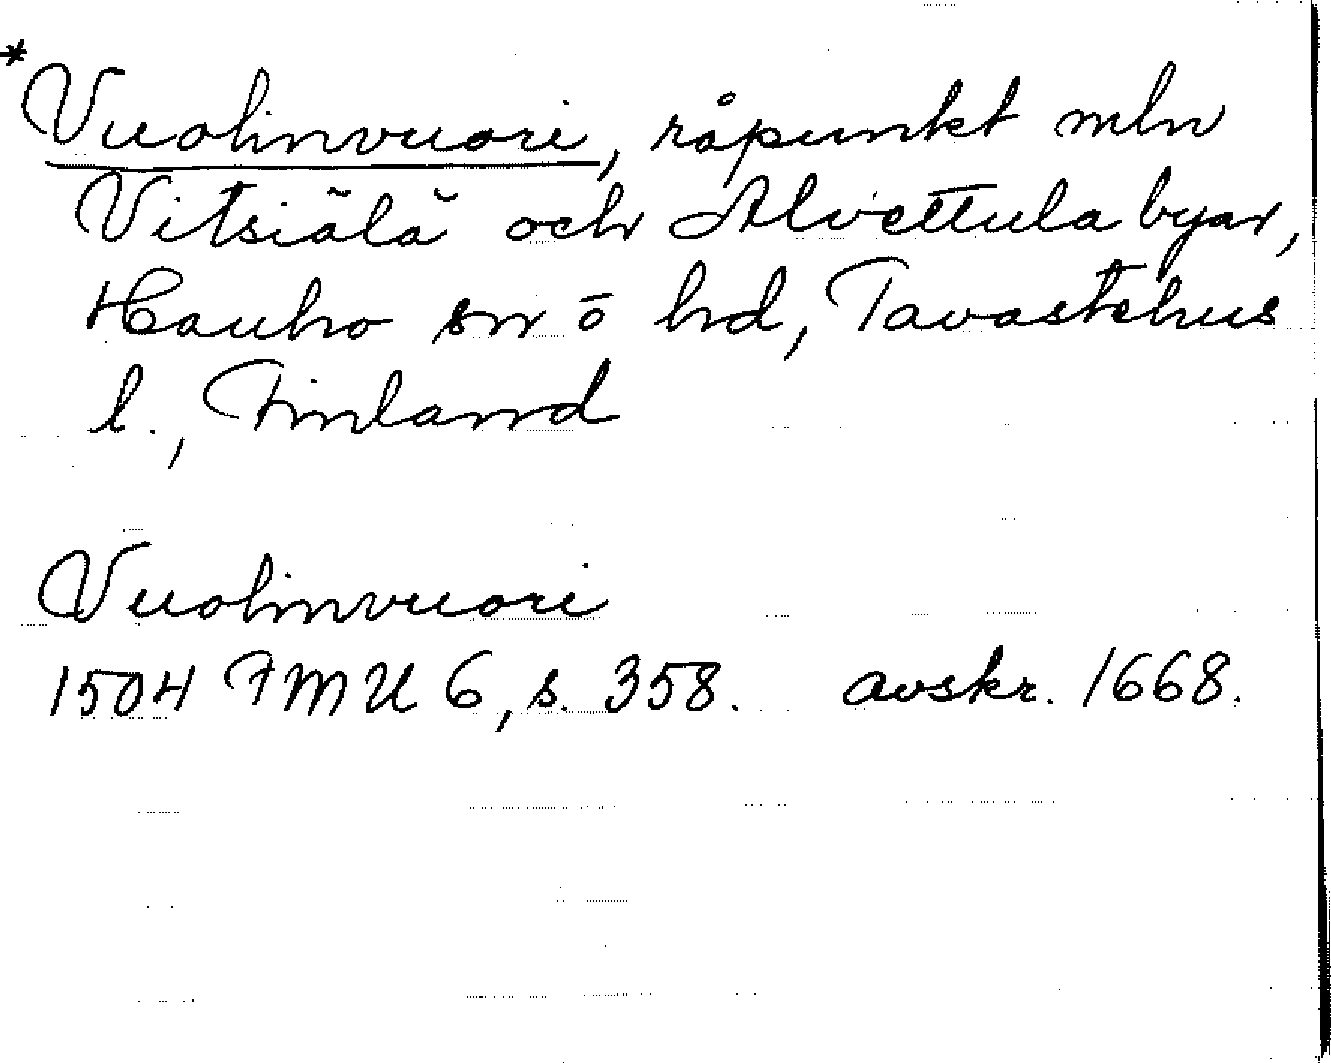 *Vuolinvuori, råpunkt mln
Vitsiälä och Alvettula byar,
Hauho sn ö hd, Tavastehus
l., Finland
Vuolinvuori
1504 FMU 6, s. 358. avskr. 1668.